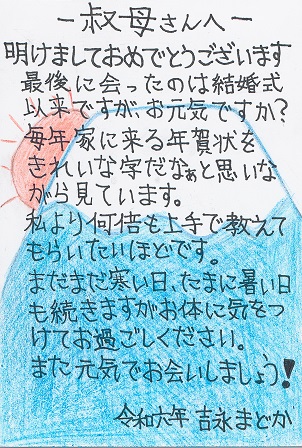 ー叔母さんへー
明けましておめでとうございます
最後に会ったのは結婚式
以来ですが、お元気ですか?
毎年家に来る年賀状を
きれいな字だなぁと思いな
がら見ています。
私より何倍も上手で教えて
もらいたいほどです。
まだまだ寒い日、たまに暑い日
も続きますがお体に気をつ
けてお過ごしください。
また元気でお会いしましょう!
令和六年 吉永まどか